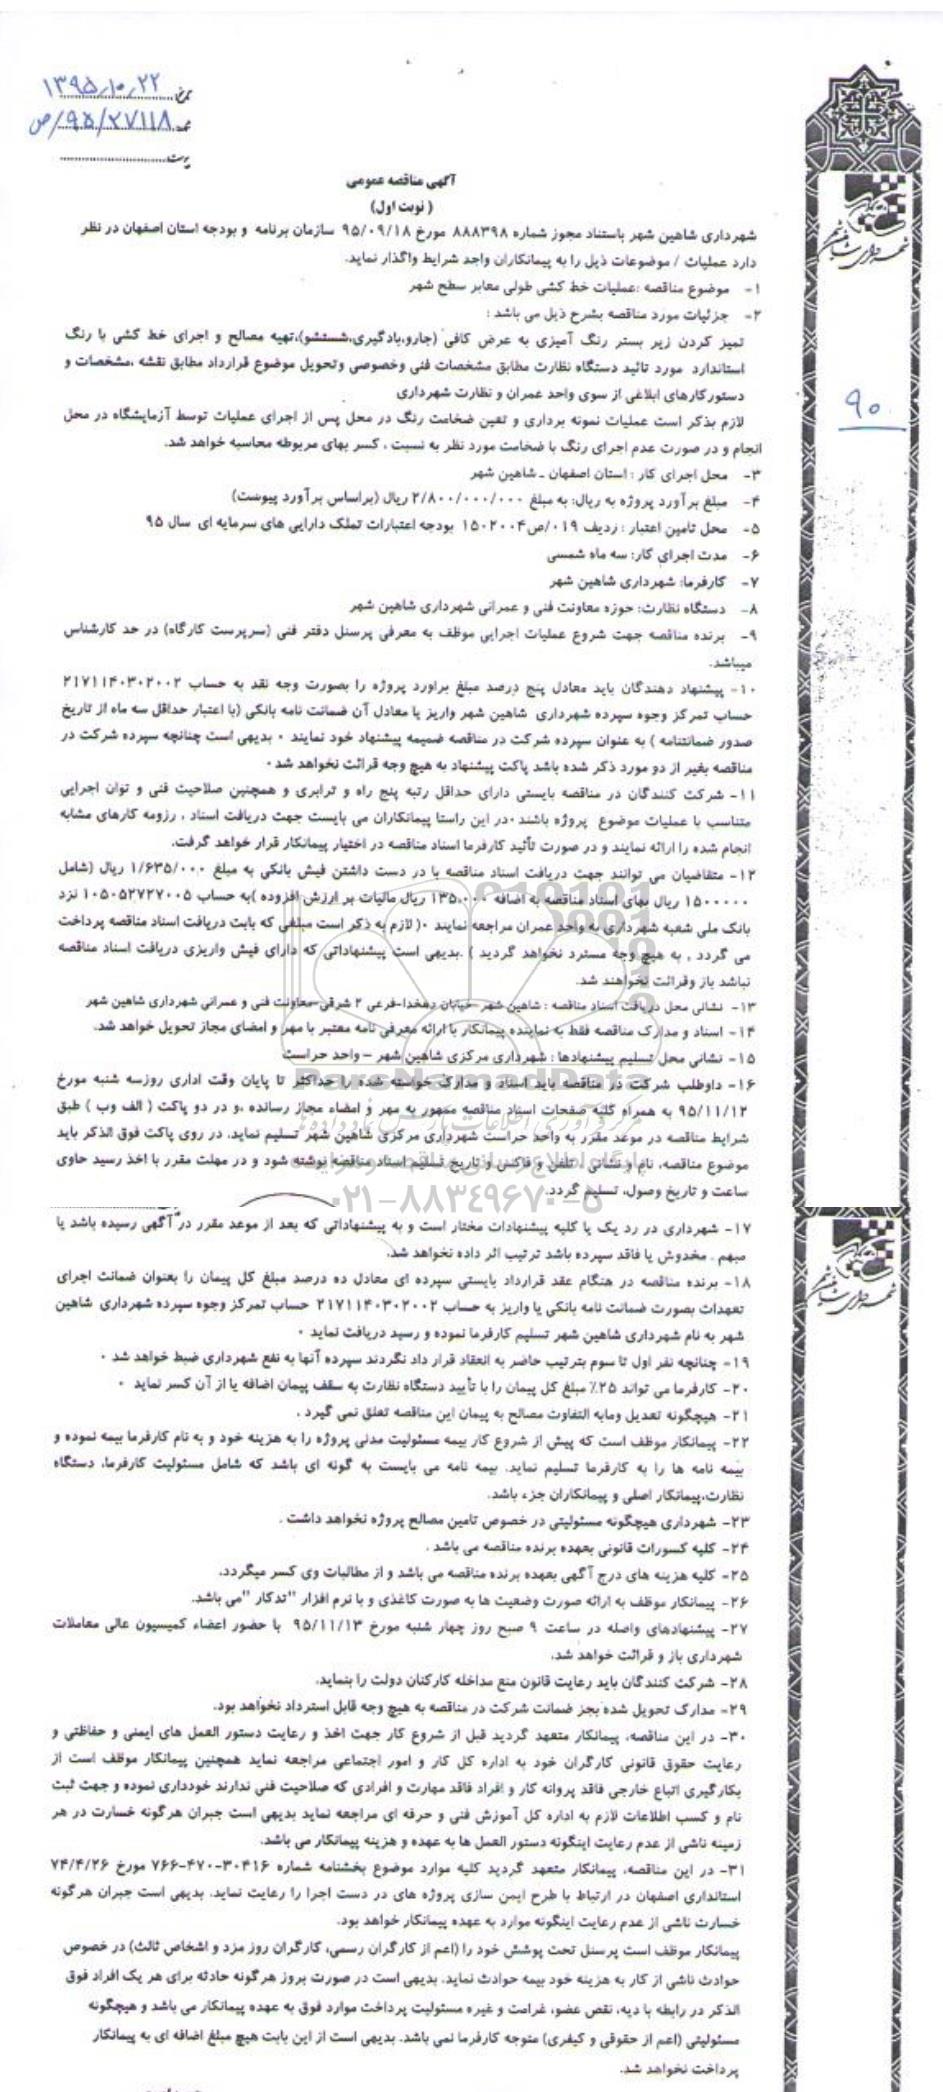 تاریخ ۱۳۹۵،۱۰،۲۲
شماره ۹۵/۲۷۱۱۸/ص
پیوست
آگهی مناقصه عمومی
( نوبت اول)
شهرداری شاهین شهر باستناد مجوز شماره ۸۸۸۳۹۸ مورخ ۹۵/۰۹/۱۸ سازمان برنامه و بودجه استان اصفهان در نظر
دارد عملیات / موضوعات ذیل را به پیمانکاران واجد شرایط واگذار نماید.
۱- موضوع مناقصه :عملیات خط کشی طولی معابر سطح شهر
۲- جزئیات مورد مناقصه بشرح ذیل می باشد :
تمیز کردن زیر بستر رنگ آمیزی به عرض کافی (جارو،بادگیری،شستشو)،تهیه مصالح و اجرای خط کشی با رنگ
استاندارد مورد تائید دستگاه نظارت مطابق مشخصات فنی وخصوصی وتحویل موضوع قرارداد مطابق نقشه ،مشخصات و
دستورکارهای ابلاغی از سوی واحد عمران و نظارت شهرداری
۹۰
لازم بذکر است عملیات نمونه برداری و تعین ضخامت رنگ در محل پس از اجرای عملیات توسط آزمایشگاه در محل
انجام و در صورت عدم اجرای رنگ با ضخامت مورد نظر به نسبت ، کسر بهای مربوطه محاسبه خواهد شد.
۳- محل اجرای کار : استان اصفهان ـ شاهین شهر
۴- مبلغ برآورد پروژه به ریال: به مبلغ ۲/۸۰۰/۰۰۰/۰۰۰ ریال (براساس برآورد پیوست)
۵- محل تامین اعتبار : ردیف ۰۱۹/ص۱۵۰۲۰۰۴ بودجه اعتبارات تملک دارایی های سرمایه ای سال ۹۵
۶- مدت اجرای کار: سه ماه شمسی
۷- کارفرما: شهرداری شاهین شهر
۸- دستگاه نظارت: حوزه معاونت فنی و عمرانی شهرداری شاهین شهر
۹- برنده مناقصه جهت شروع عملیات اجرایی موظف به معرفی پرسنل دفتر فنی (سرپرست کارگاه) در حد کارشناس
میباشد.
۱۰- پیشنهاد دهندگان باید معادل پنج درصد مبلغ براورد پروژه را بصورت وجه نقد به حساب ۲۱۷۱۱۴۰۳۰۲۰۰۲
حساب تمرکز وجوه سپرده شهرداری شاهین شهر واریز یا معادل آن ضمانت نامه بانکی (با اعتبار حداقل سه ماه از تاریخ
صدور ضمانتنامه ) به عنوان سپرده شرکت در مناقصه ضمیمه پیشنهاد خود نمایند ۰ بدیهی است چنانچه سپرده شرکت در
مناقصه بغیر از دو مورد ذکر شده باشد پاکت پیشنهاد به هیچ وجه قرائت نخواهد شد۰
۱۱- شرکت کنندگان در مناقصه بایستی دارای حداقل رتبه پنج راه و ترابری و همچنین صلاحیت فنی و توان اجرایی
متناسب با عملیات موضوع پروژه باشند ۰در این راستا پیمانکاران می بایست جهت دریافت اسناد ، رزومه کارهای مشابه
انجام شده را ارائه نمایند و در صورت تأئید کارفرما اسناد مناقصه در اختیار پیمانکار قرار خواهد گرفت.
۱۲- متقاضیان می توانند جهت دریافت اسناد مناقصه با در دست داشتن فیش بانکی به مبلغ ۱/۶۳۵/۰۰۰ ریال (شامل
۱۵۰۰۰۰۰ ریال بهای اسناد مناقصه به اضافه ۱۳۵.۰۰۰ ریال مالیات بر ارزش افزوده )به حساب ۱۰۵۰۵۲۷۲۷۰۰۵ نزد
بانک ملی شعبه شهرداری به واحد عمران مراجعه نمایند ۰( لازم به ذکر است مبلغی که بابت دریافت اسناد مناقصه پرداخت
می گردد , به هیچ وجه مسترد نخواهد گردید ) .بدیهی است پیشنهاداتی که دارای فیش واریزی دریافت اسناد مناقصه
نباشد باز وقرائت نخواهند شد.
۱۳- نشانی محل دریافت اسناد مناقصه : شاهین شهر-خیابان دهخدا-فرعی ۲ شرقی-معاونت فنی و عمرانی شهرداری شاهین شهر
۱۴- اسناد و مدارک مناقصه فقط به نماینده پیمانکار با ارائه معرفی نامه معتبر با مهر و امضای مجاز تحویل خواهد شد.
۱۵- نشانی محل تسلیم پیشنهادها : شهرداری مرکزی شاهین شهر – واحد حراست
ParsNamadData
۱۶- داوطلب شرکت در مناقصه باید اسناد و مدارک خواسته شده را حداکثر تا پایان وقت اداری روزسه شنبه مورخ
۹۵/۱۱/۱۲ به همراه کلیه صفحات اسناد مناقصه ممهور به مهر و امضاء مجاز رسانده ،و در دو پاکت ( الف وب ) طبق
شرایط مناقصه در موعد مقرر به واحد حراست شهرداری مرکزی شاهین شهر تسلیم نماید. در روی پاکت فوق الذکر باید
موضوع مناقصه، نام و نشانی ، تلفن و فاکس و تاریخ تسلیم اسناد مناقصه نوشته شود و در مهلت مقرر با اخذ رسید حاوی
ساعت و تاریخ وصول، تسلیم گردد.
۰۲۱-۸۸۳۴۹۶۷۰-۵
۱۷- شهرداری در رد یک یا کلیه پیشنهادات مختار است و به پیشنهاداتی که بعد از موعد مقرر در آگهی رسیده باشد یا
مبهم ، مخدوش یا فاقد سپرده باشد ترتیب اثر داده نخواهد شد.
۱۸- برنده مناقصه در هنگام عقد قرارداد بایستی سپرده ای معادل ده درصد مبلغ کل پیمان را بعنوان ضمانت اجرای
تعهدات بصورت ضمانت نامه بانکی یا واریز به حساب ۲۱۷۱۱۴۰۳۰۲۰۰۲ حساب تمرکز وجوه سپرده شهرداری شاهین
شهر به نام شهرداری شاهین شهر تسلیم کارفرما نموده و رسید دریافت نماید ۰
۱۹- چنانچه نفر اول تا سوم بترتیب حاضر به انعقاد قرار داد نگردند سپرده آنها به نفع شهرداری ضبط خواهد شد ۰
۲۰- کارفرما می تواند ۲۵٪ مبلغ کل پیمان را با تأیید دستگاه نظارت به سقف پیمان اضافه یا از آن کسر نماید ۰
۲۱- هیچگونه تعدیل ومابه التفاوت مصالح به پیمان این مناقصه تعلق نمی گیرد .
۲۲- پیمانکار موظف است که پیش از شروع کار بیمه مسئولیت مدنی پروژه را به هزینه خود و به نام کارفرما بیمه نموده و
بیمه نامه ها را به کارفرما تسلیم نماید. بیمه نامه می بایست به گونه ای باشد که شامل مسئولیت کارفرما، دستگاه
نظارت،پیمانکار اصلی و پیمانکاران جزء باشد.
۲۳- شهرداری هیچگونه مسئولیتی در خصوص تامین مصالح پروژه نخواهد داشت .
۲۴- کلیه کسورات قانونی بعهده برنده مناقصه می باشد .
۲۵- کلیه هزینه های درج آگهی بعهده برنده مناقصه می باشد و از مطالبات وی کسر میگردد.
۲۶- پیمانکار موظف به ارائه صورت وضعیت ها به صورت کاغذی و با نرم افزار "تدکار "می باشد.
۲۷- پیشنهادهای واصله در ساعت ۹ صبح روز چهار شنبه مورخ ۹۵/۱۱/۱۳ با حضور اعضاء کمیسیون عالی معاملات
شهرداری باز و قرائت خواهد شد.
۲۸- شرکت کنندگان باید رعایت قانون منع مداخله کارکنان دولت را بنماید.
۲۹- مدارک تحویل شده بجز ضمانت شرکت در مناقصه به هیچ وجه قابل استرداد نخواهد بود.
۳۰- در این مناقصه، پیمانکار متعهد گردید قبل از شروع کار جهت اخذ و رعایت دستور العمل های ایمنی و حفاظتی و
رعایت حقوق قانونی کارگران خود به اداره کل کار و امور اجتماعی مراجعه نماید همچنین پیمانکار موظف است از
بکارگیری اتباع خارجی فاقد پروانه کار و افراد فاقد مهارت و افرادی که صلاحیت فنی ندارند خودداری نموده و جهت ثبت
نام و کسب اطلاعات لازم به اداره کل آموزش فنی و حرفه ای مراجعه نماید بدیهی است جبران هرگونه خسارت در هر
زمینه ناشی از عدم رعایت اینگونه دستور العمل ها به عهده و هزینه پیمانکار می باشد.
۳۱- در این مناقصه، پیمانکار متعهد گردید کلیه موارد موضوع بخشنامه شماره ۳۰۴۱۶-۴۷۰-۷۶۶ مورخ ۷۴/۴/۲۶
استانداری اصفهان در ارتباط با طرح ایمن سازی پروژه های در دست اجرا را رعایت نماید. بدیهی است جبران هرگونه
خسارت ناشی از عدم رعایت اینگونه موارد به عهده پیمانکار خواهد بود.
پیمانکار موظف است پرسنل تحت پوشش خود را (اعم از کارگران رسمی، کارگران روز مزد و اشخاص ثالث) در خصوص
حوادث ناشی از کار به هزینه خود بیمه حوادث نماید. بدیهی است در صورت بروز هرگونه حادثه برای هر یک افراد فوق
الذکر در رابطه با دیه، نقص عضو، غرامت و غیره مسئولیت پرداخت موارد فوق به عهده پیمانکار می باشد و هیچگونه
مسئولیتی (اعم از حقوقی و کیفری) متوجه کارفرما نمی باشد. بدیهی است از این بابت هیچ مبلغ اضافه ای به پیمانکار
پرداخت نخواهد شد.